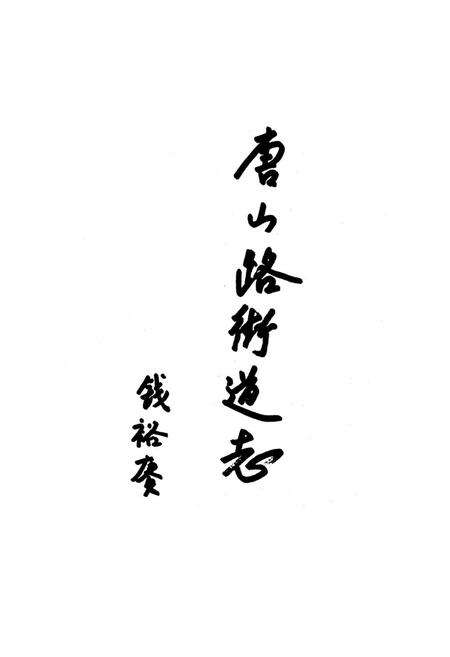 唐山路街道志
钱裕赓